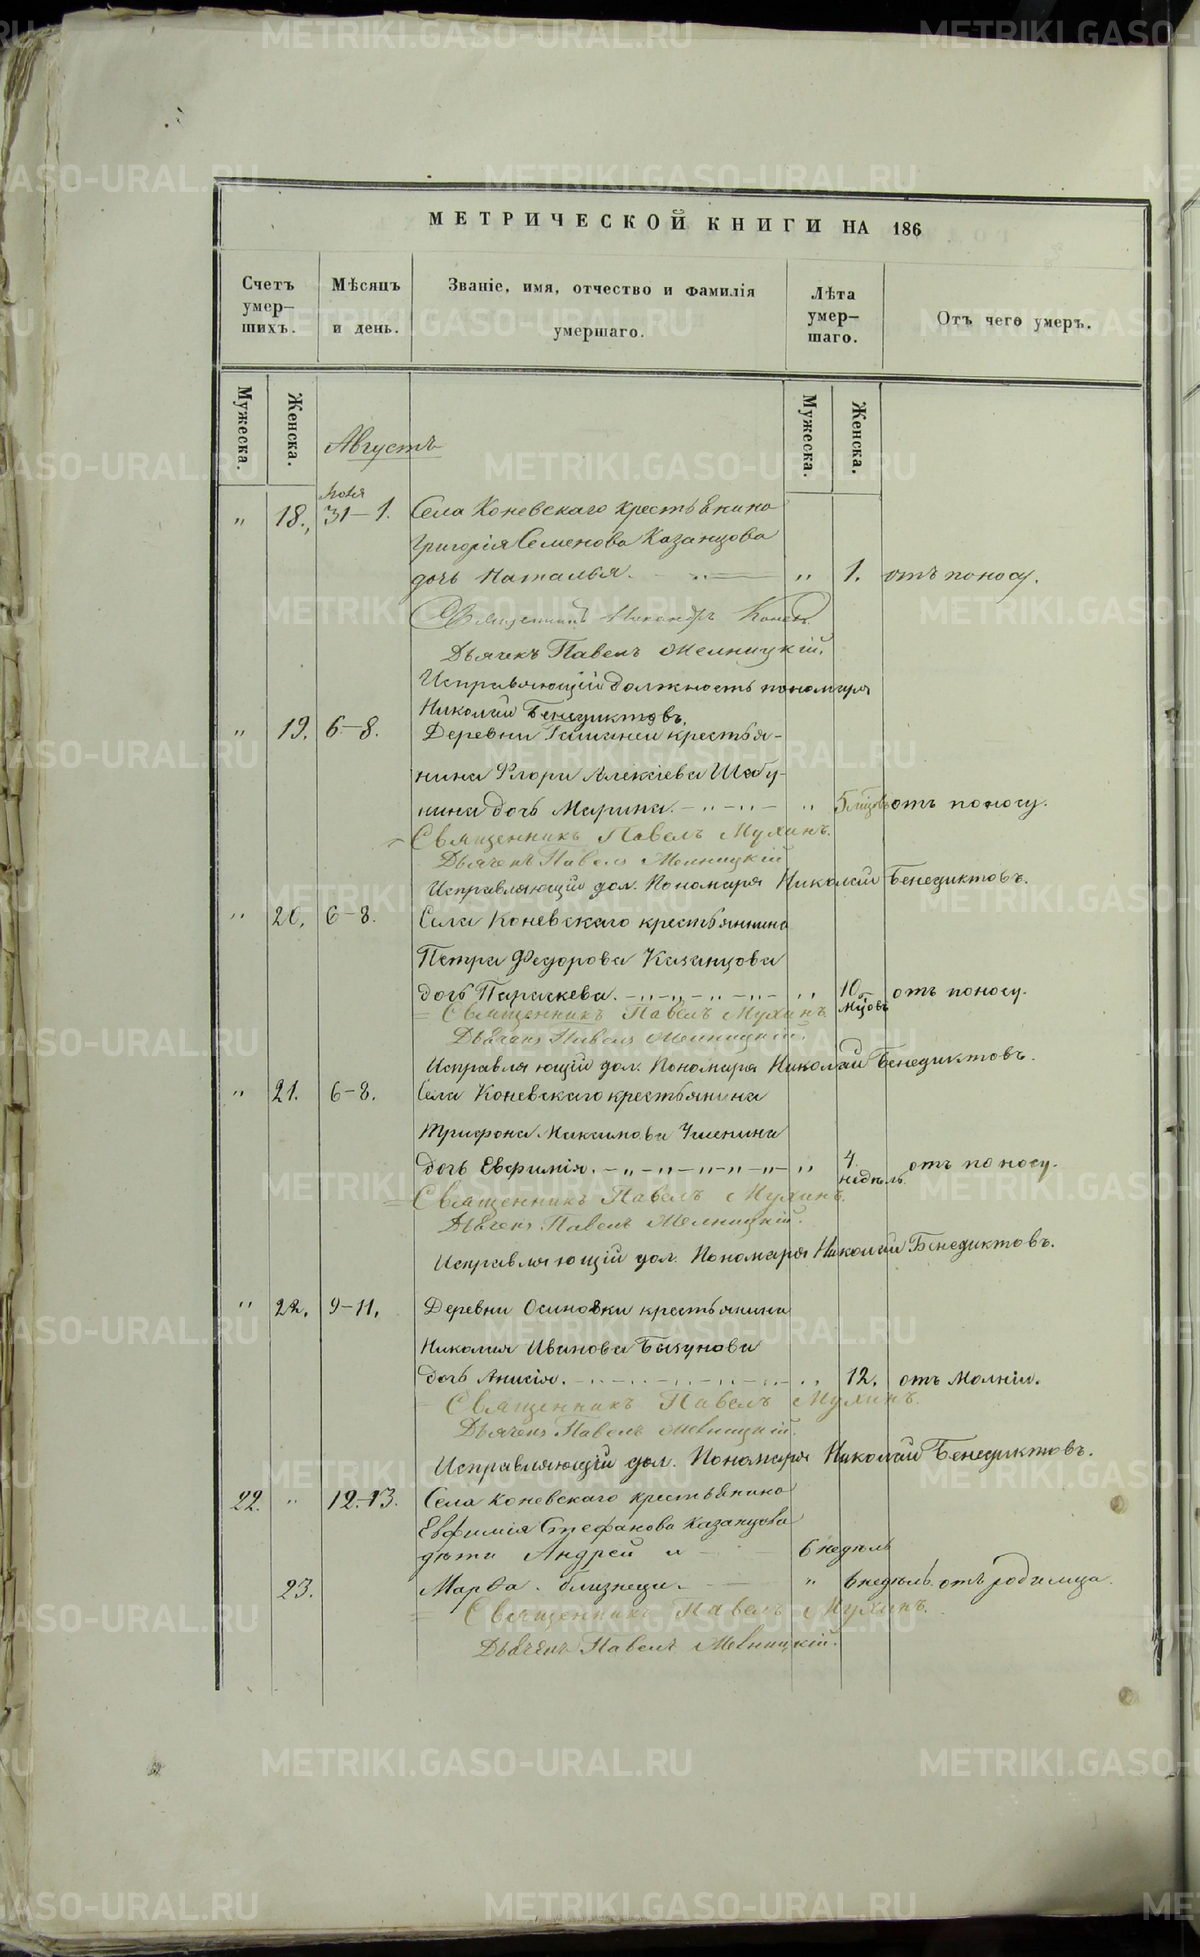 МЕТРИЧЕСКОЙ КНИГИ НА 186
Счетъ умер–шихъ.
Мѣсяцъ и день.
Званіе, имя, отчество и фамилія умершаго.
Лѣта умер–шаго.
Отъ чего умеръ.
Мужеска.
Женска.
Мужеска.
Женска.
Августъ
" 18. 31–1. Села Коневскаго крестьянина
Григорія Семенова Казанцова
дочь Наталья. " 1. отъ поносу.
Священникъ
Дьячекъ Павелъ Мелницкій.
Исправляющій должность пономаря
Николай Бенедиктовъ.
" 19. 6–8. Деревни крестья-
нина Флора Алексіева Шабу-
нина дочь Марина. " 5 мцовъ отъ поносу.
Священникъ Павелъ Мухинъ.
Дьячекъ Павелъ Мелницкій
Исправляющій дол. Пономаря Николай Бенедиктовъ.
" 20. 6–8. Села Коневскаго крестьянина
Петра Федорова Казанцова
дочь Параскева. " 10 мцовъ отъ поносу.
Священникъ Павелъ Мухинъ
Дьячекъ Павелъ Мелницкій.
Исправляющій дол. Пономаря Николай Бенедиктовъ.
" 21. 6–8. Села Коневскаго крестьянина
Трифона Максимова
дочь Евфимія. " 4 недѣль. отъ поносу.
Священникъ Павелъ Мухинъ.
Дьячекъ Павелъ Мелницкій.
Исправляющій дол. Пономаря Николай Бенедиктовъ.
" 22. 9–11. Деревни Осиновки крестьянина
Николая Иванова Базунова
дочь Анисія. " 12. отъ Молніи.
Священникъ Павелъ Мухинъ.
Дьячекъ Павелъ Мелницкій.
Исправляющій дол. Пономаря Николай Бенедиктовъ.
22. " 12–13. Села Коневскаго крестьянина
Евфимія Стефанова Казанцова
дѣти Андрей и 6 недѣль
23. Марѳа. близнецы. " 6 недѣль. отъ родимца.
Священникъ Павелъ Мухинъ.
Дьячекъ Павелъ Мелницкій.
METRIKI.GASO-URAL.RU